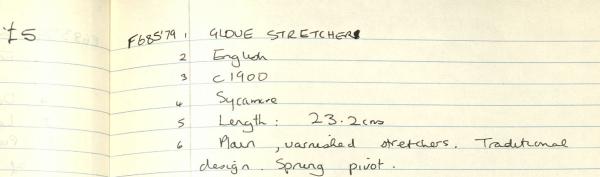 £5
F685'79 1 GLOVE STRETCHERS
2 English
3 c1900
4 Sycamore
5 Length: 23.2cms
6 Plain, varnished stretchers. Traditional
design. Sprung pivot.